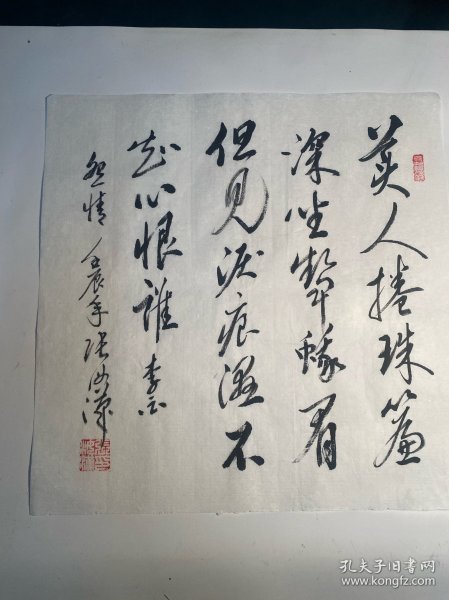 美人捲珠簾
深坐顰蛾眉
但見淚痕濕不
知心恨誰 李白
怨情 壬辰年 张
孔夫子旧书网
www.kongfz.com